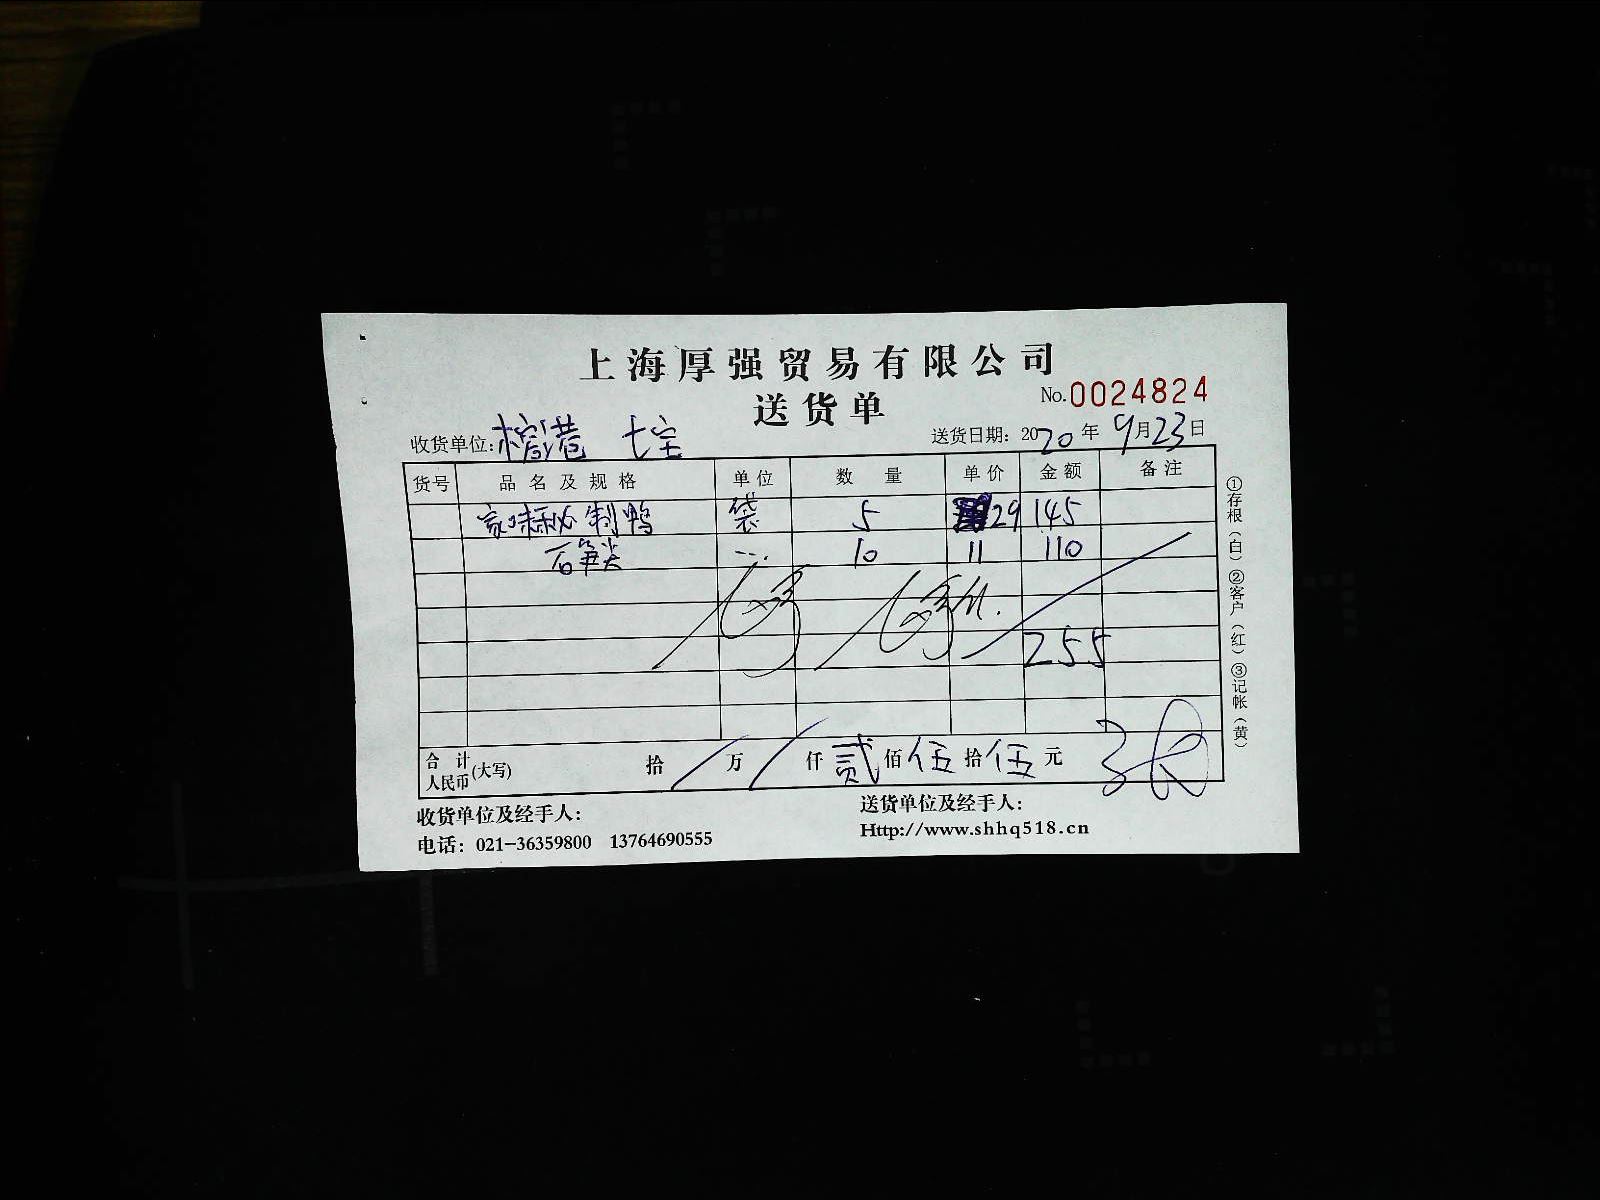 上海厚强贸易有限公司
送货单
No.0024824
收货单位: 榭港 七宝
送货日期: 2020年9月23日
货号 品名及规格 单位 数量 单价 金额 备注
家味秘制鸭 袋 5 29 145
石笋尖 --- 10 11 110
255
合计人民币(大写) 拾 / 万 / 仟 贰 佰 伍 拾 伍 元
收货单位及经手人:
送货单位及经手人:
电话: 021-36359800 13764690555
Http://www.shhq518.cn
①存根(白) ②客户(红) ③记帐(黄)